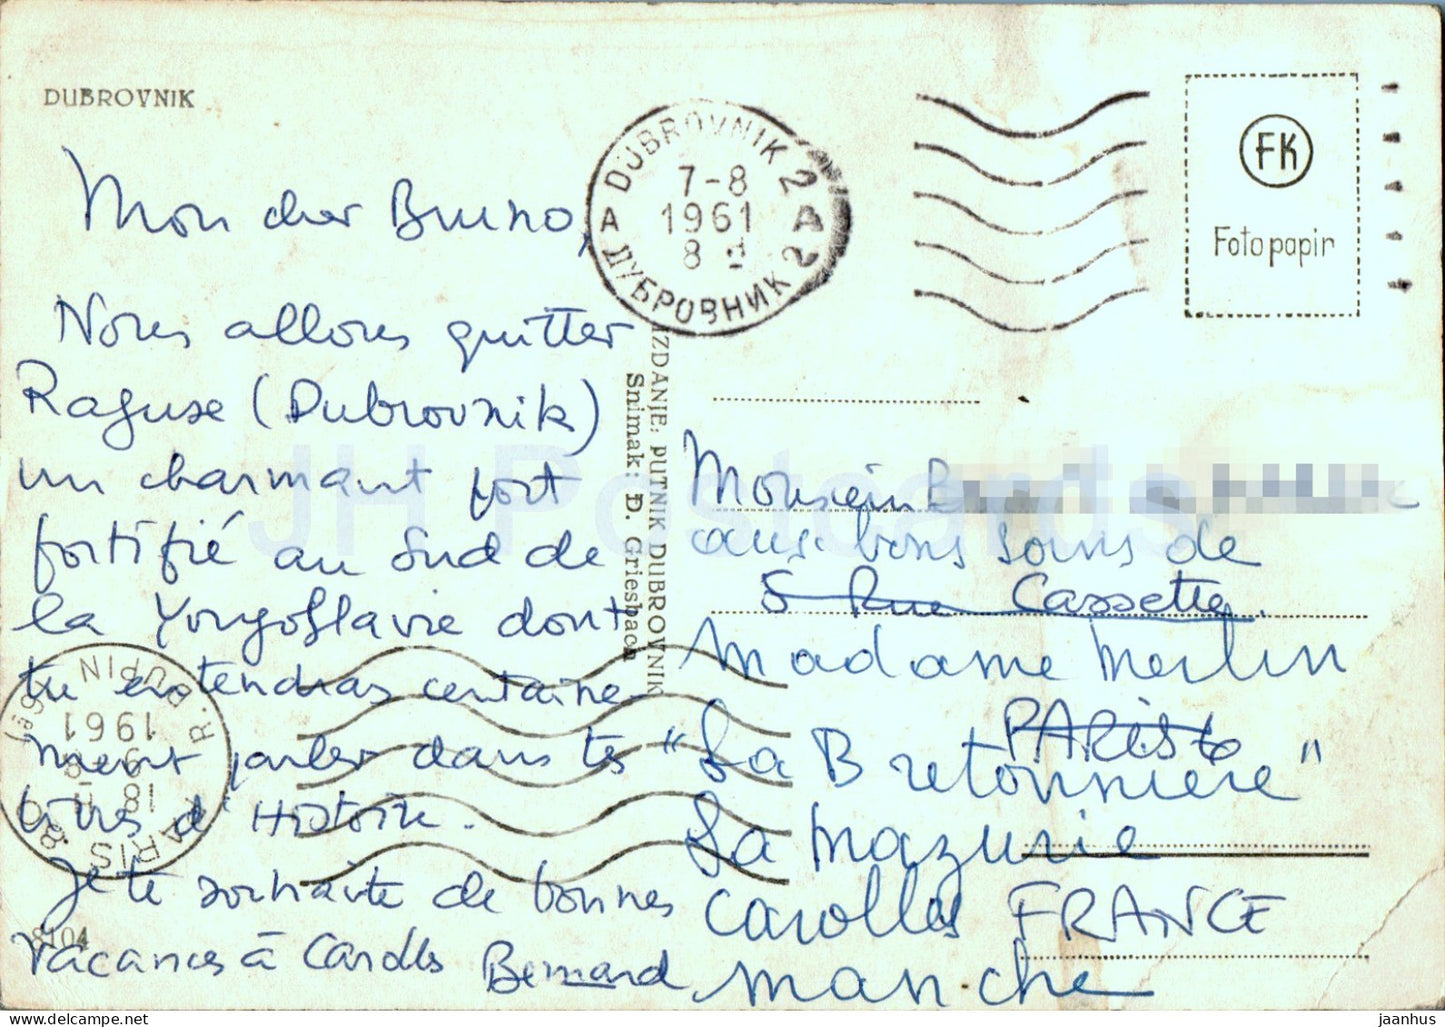 DUBROVNIK
Mon cher Bruno,
Nous allons quitter
Raguse (Dubrovnik)
un charmant port
fortifié au Sud de
la Yougoslavie dont
tu entendras certaine-
ment parler dans tes
livres d'Histoire.
Je te souhaite de bonnes
Vacances à Carolles Bernard
8104
DUBROVNIK 2
A 7-8 A
1961
8
ДУБРОВНИК 2
PARIS
R. DUPIN (6e)
1961
9 - 8
18 H
IZDANJE: PUTNIK DUBROVNIK
Snimak: Đ. Griesbach
FK
Foto papir
Monsieur
aux bons soins de
5 Rue Cassette
Madame Merlin
PARIS 6
"La Bretonniere"
La Mazurie
Carolles FRANCE
Manche
JH Postcards
jaanhus
delcampe.net